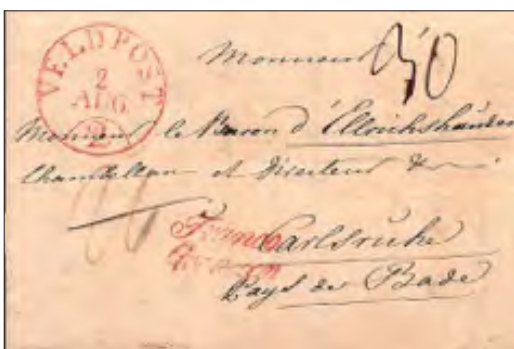 VELDPOST
2
AUG
2
Monsieur
30
Monsieur le Baron d'Ellrichshausen
Chambellan et Directeur &
Franco
Carlsruhe
Pays de Bade